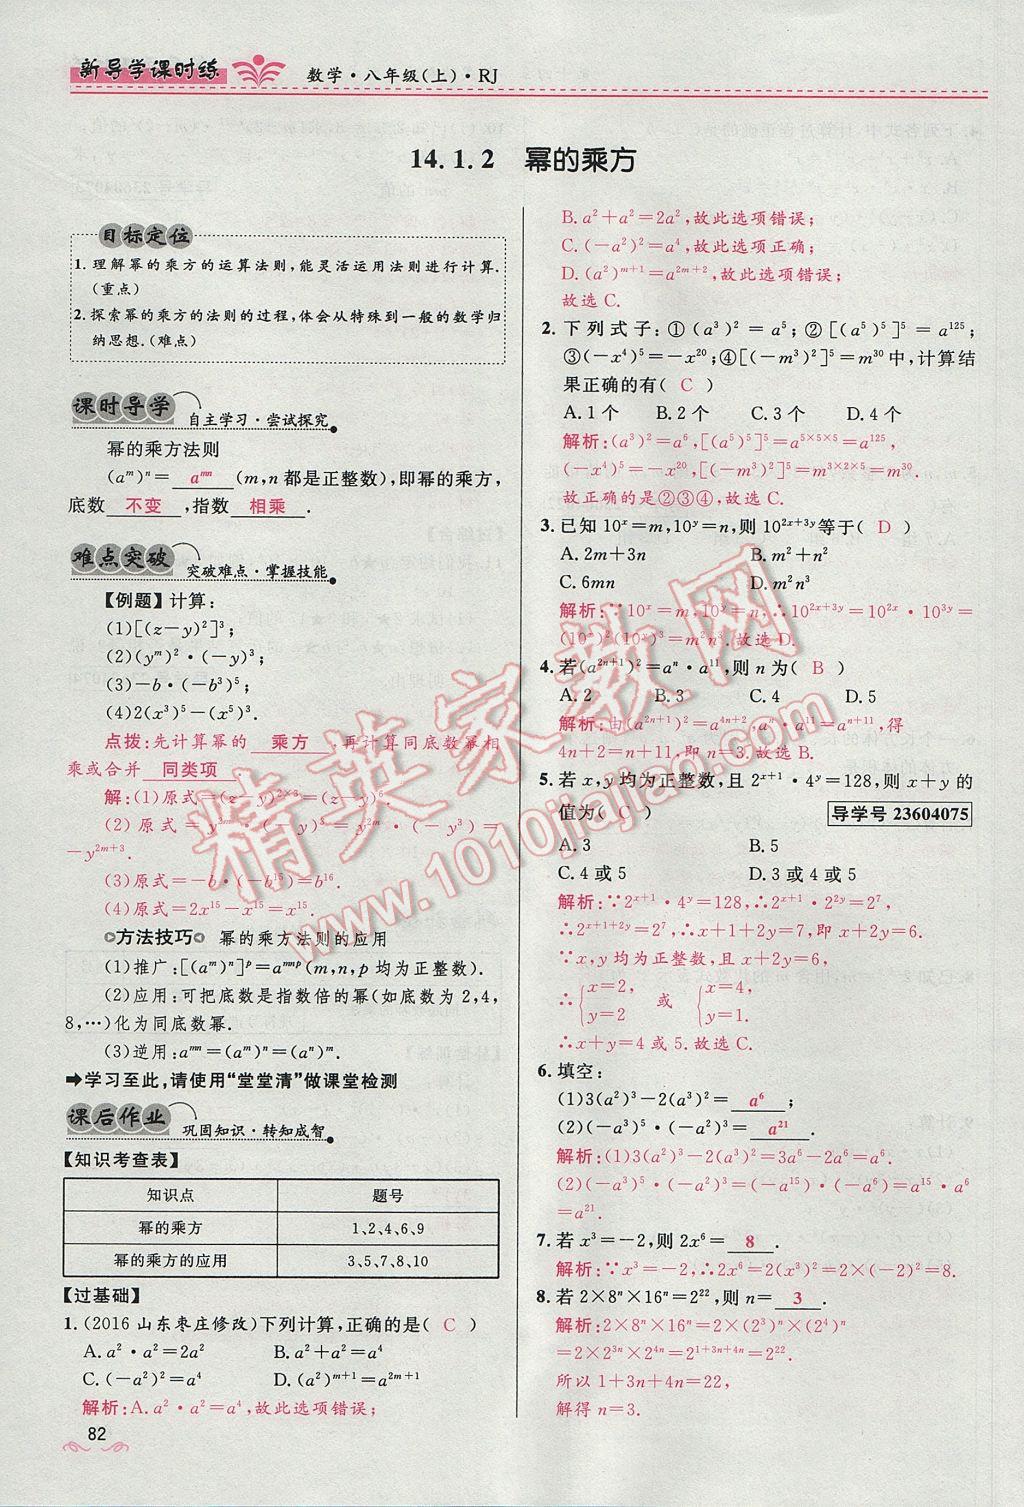 新导学课时练
数学·八年级(上)·RJ
14.1.2 幂的乘方
目标定位
1. 理解幂的乘方的运算法则,能灵活运用法则进行计算.
(重点)
2. 探索幂的乘方的法则的过程,体会从特殊到一般的数学归
纳思想.(难点)
课时导学 自主学习·尝试探究
幂的乘方法则
(aᵐ)ⁿ= aᵐⁿ (m,n都是正整数),即幂的乘方,
底数 不变 ,指数 相乘 .
难点突破 突破难点·掌握技能
【例题】计算:
(1)[(z-y)²]³;
(2)(yᵐ)²·(-y)³;
(3)-b·(-b³)⁵;
(4)2(x³)⁵-(x⁵)³.
点拨:先计算幂的 乘方 ,再计算同底数幂相
乘或合并 同类项 .
解:(1)原式=(z-y)²ˣ³=(z-y)⁶.
(2)原式=y²ᵐ·(-y)³=y²ᵐ·(-y³)=
-y²ᵐ⁺³.
(3)原式=-b·(-b¹⁵)=b¹⁶.
(4)原式=2x¹⁵-x¹⁵=x¹⁵.
方法技巧 幂的乘方法则的应用
(1)推广:[(aᵐ)ⁿ]ᵖ=aᵐⁿᵖ(m,n,p均为正整数).
(2)应用:可把底数是指数倍的幂(如底数为2,4,
8,…)化为同底数幂.
(3)逆用:aᵐⁿ=(aᵐ)ⁿ=(aⁿ)ᵐ.
➡学习至此,请使用“堂堂清”做课堂检测
课后作业 巩固知识·转知成智
【知识考查表】
知识点 题号
幂的乘方 1、2、4、6、9
幂的乘方的应用 3、5、7、8、10
【过基础】
1. (2016山东枣庄修改)下列计算,正确的是( C )
A. a²·a²=2a² B. a²+a²=a⁴
C. (-a²)²=a⁴ D. (a²)ᵐ⁺¹=a²ᵐ⁺¹
解析:A. a²·a²=a⁴,故此选项错误;
82
B. a²+a²=2a²,故此选项错误;
C. (-a²)²=a⁴,故此选项正确;
D. (a²)ᵐ⁺¹=a²ᵐ⁺²,故此选项错误;
故选C.
2. 下列式子:①(a³)²=a⁵;②[(a⁵)⁵]⁵=a¹²⁵;
③(-x⁴)⁵=-x²⁰;④[(-m³)²]⁵=m³⁰中,计算结
果正确的有( C )
A. 1个 B. 2个 C. 3个 D. 4个
解析:(a³)²=a⁶,[(a⁵)⁵]⁵=a⁵ˣ⁵ˣ⁵=a¹²⁵,
(-x⁴)⁵=-x²⁰,[(-m³)²]⁵=m³ˣ²ˣ⁵=m³⁰.
故正确的是②③④,故选C.
3. 已知10ˣ=m,10ʸ=n,则10²ˣ⁺³ʸ等于( D )
A. 2m+3n B. m²+n²
C. 6mn D. m²n³
解析:∵10ˣ=m,10ʸ=n,∴10²ˣ⁺³ʸ=10²ˣ·10³ʸ=
(10ˣ)²(10ʸ)³=m²n³.故选D.
4. 若(a²ⁿ⁺¹)²=aⁿ·a¹¹,则n为( B )
A. 2 B. 3 C. 4 D. 5
解析:由(a²ⁿ⁺¹)²=a⁴ⁿ⁺²,aⁿ·a¹¹=aⁿ⁺¹¹,得
4n+2=n+11,即n=3.故选B.
5. 若x,y均为正整数,且2ˣ⁺¹·4ʸ=128,则x+y的
值为( C ) 导学号 23604075
A. 3 B. 5
C. 4或5 D. 3或4或5
解析:∵2ˣ⁺¹·4ʸ=128,∴2ˣ⁺¹·2²ʸ=2⁷,
∴2ˣ⁺¹⁺²ʸ=2⁷,∴x+1+2y=7,即x+2y=6.
∵x,y均为正整数,且x+2y=6,
∴{x=2, y=2 或 {x=4, y=1.
∴x+y=4或5.故选C.
6. 填空:
(1)3(a²)³-2(a³)²= a⁶ ;
(2)(-a³)⁵·(-a²)³= a²¹ .
解析:(1)3(a²)³-2(a³)²=3a⁶-2a⁶=a⁶.
(2)(-a³)⁵·(-a²)³=(-a¹⁵)·(-a⁶)=a¹⁵·a⁶
=a²¹.
7. 若x³=-2,则2x⁶= 8 .
解析:∵x³=-2,∴2x⁶=2(x³)²=2×(-2)²=8.
8. 若2×8ⁿ×16ⁿ=2²²,则n= 3 .
解析:2×8ⁿ×16ⁿ=2×(2³)ⁿ×(2⁴)ⁿ
=2×2³ⁿ×2⁴ⁿ=2¹⁺³ⁿ⁺⁴ⁿ=2²².
所以1+3n+4n=22,
解得n=3.
精英家教网
www.1010jiajiao.com